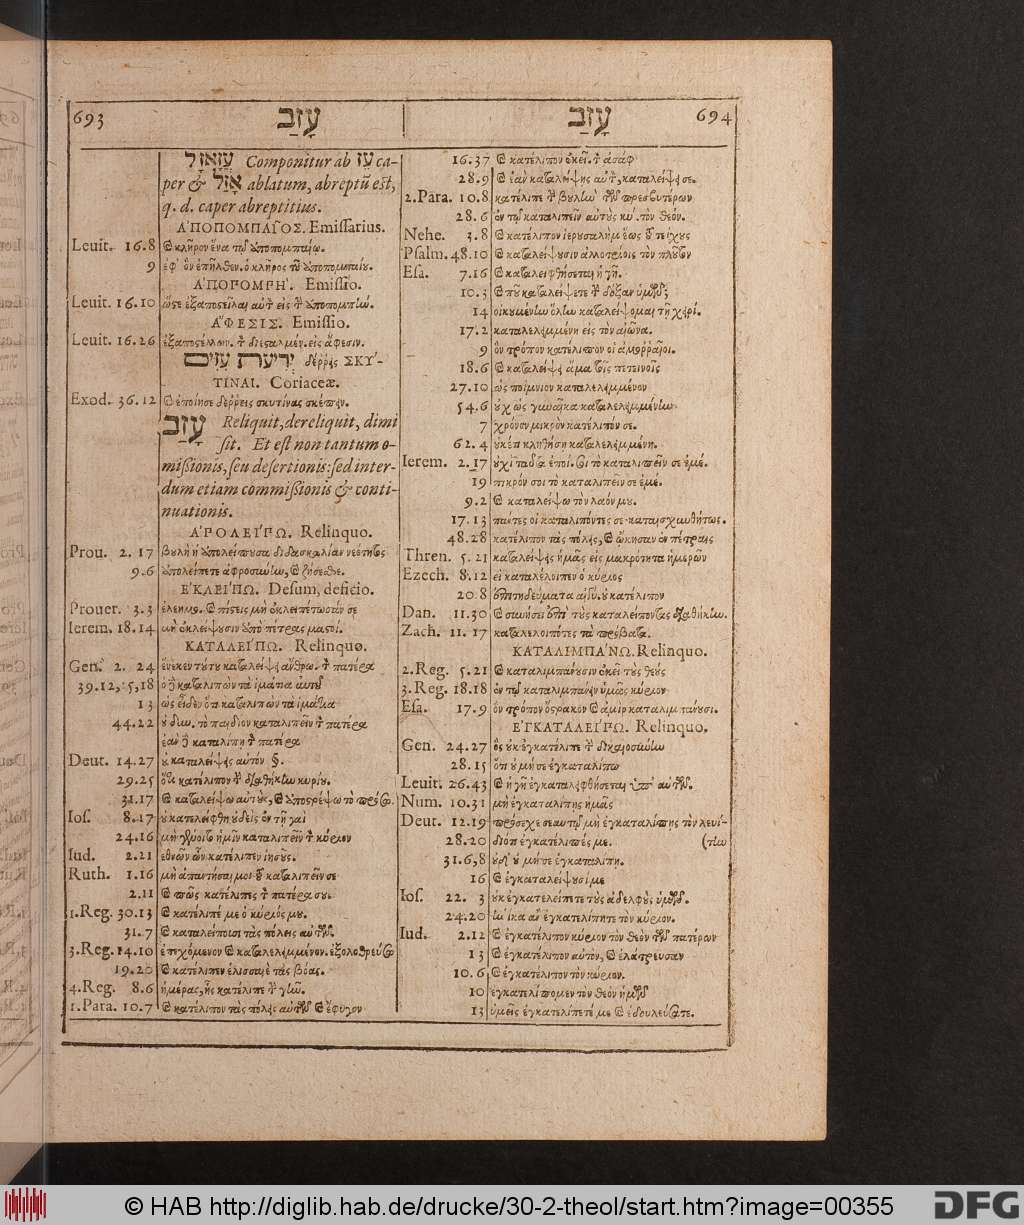 693 עָזַב עָזַב 694
עֲזָאזֵל Componitur ab עֵז ca-
per & אָזַל ablatum, abreptũ est,
q. d. caper abreptitius.
ἈΠΟΠΟΜΠΑῖΟΣ. Emissarius.
Leuit. 16.8 κλῆρον ἕνα τῷ ἀποπομπαίῳ.
9 ἐφ' ὃν ἐπῆλθεν. ὁ κλῆρος τοῦ ἀποπομπαίου.
ἈΠΟΠΟΜΠΉ. Emissio.
Leuit. 16.10 ὥστε ἐξαποστεῖλαι αὐτὸν εἰς τὴν ἀποπομπὴν.
ἌΦΕΣΙΣ. Emissio.
Leuit. 16.26 ἐξαποστέλλων. τὸν διεσταλμέν. εἰς ἄφεσιν.
יריעות עזים δέρρεις ΣΚΎ-
ΤΙΝΑΙ. Coriaceæ.
Exod. 36.12 ἐποίησε δέρρεις σκυτίνας σκέπην.
עָזַב Reliquit, dereliquit, dimi
sit. Et est non tantum o-
missionis, seu desertionis: sed inter-
dum etiam commissionis & conti-
nuationis.
ἈΠΟΛΕΊΠΩ. Relinquo.
Prou. 2. 17 ἀπολείπουσα διδασκαλίαν νεότητος
9.6 ἀπολείπετε ἀφροσύνην, ζήσεσθε.
ἘΚΛΕΊΠΩ. Desum, deficio.
Prouer. 3.3 πίστεις μὴ ἐκλειπέτωσάν σε
Ierem. 18.14 μὴ ἐκλείψουσιν ἀπὸ πέτρας μαστοί.
ΚΑΤΑΛΕΊΠΩ. Relinquo.
Gen. 2. 24 ἕνεκεν τούτου καταλείψει ἄνθρω. τὸν πατέρα
39.12, 15, 18 καταλιπὼν τὰ ἱμάτια αὐτοῦ
13 ὡς εἶδεν ὅτι καταλιπὼν τὰ ἱμάτια
44.22 τὸ παιδίον καταλιπεῖν τὸν πατέρα
ἐὰν καταλίπῃ τὸν πατέρα
Deut. 14.27 οὐ καταλείψεις αὐτόν §.
29.25 ὅτι κατέλιπον τὴν διαθήκην κυρίου.
31.17 καταλείψω αὐτοὺς, ἀποστρέψω τὸ πρόσω.
Ios. 8.17 οὐ κατελείφθη οὐδεὶς ἐν τῇ γαὶ
24.16 μὴ γένοιτο ἡμῖν καταλιπεῖν τὸν κύριον
Iud. 2.21 ἐθνῶν ὧν κατέλιπεν ἰησοῦς.
Ruth. 1.16 μὴ ἀπαντήσαι μοι τοῦ καταλιπεῖν σε
2.11 πῶς κατέλιπες τὸν πατέρα σου.
1.Reg. 30.13 κατέλιπέ με ὁ κύριός μου.
31.7 καταλείπουσι τὰς πόλεις αὐτῶν.
3.Reg. 14.10 ἐπεχόμενον καταλελειμμένον. ἐξολοθρεύσω
19.20 κατέλιπεν ἐλισσαιὲ τὰς βόας.
4.Reg. 8.6 ἡμέρας, ἧς κατέλιπε τὴν γῆν.
1.Para. 10.7 κατέλιπον τὰς πόλεις αὐτῶν ἔφυγον
16.37 κατέλιπον ἐκεῖ. τὸν ἀσὰφ
28.9 ἐὰν καταλείψῃς αὐτὸν, καταλείψει σε.
2.Para. 10.8 κατέλιπε τὴν βουλὴν τῶν πρεσβυτέρων
28.6 ἐν τῷ καταλιπεῖν αὐτοὺς κύ. τὸν θεόν.
Nehe. 3.8 κατέλιπον ἱερουσαλὴμ ἕως τοῦ τείχους
Psalm. 48.10 καταλείψουσιν ἀλλοτρίοις τὸν πλοῦτον
Esa. 7.16 καταλειφθήσεται ἡ γῆ.
10.3 ποῦ καταλείψετε τὴν δόξαν ὑμῶν;
14 οἰκουμένην ὅλην καταλείψομαι τῇ χειρί.
17.2 καταλελειμμένη εἰς τὸν αἰῶνα.
9 ὃν τρόπον κατέλιπον οἱ ἀμορραῖοι.
18.6 καταλείψει ἅμα τοῖς πετεινοῖς
27.10 ὡς ποίμνιον καταλελειμμένον
54.6 οὐχ ὡς γυναῖκα καταλελειμμένην
7 χρόνον μικρὸν κατέλιπόν σε.
62.4 οὐκέτι κληθήσῃ καταλελειμμένη.
Ierem. 2.17 οὐχὶ ταῦτα ἐποί. σοι τὸ καταλιπεῖν σε ἐμέ.
19 πικρόν σοι τὸ καταλιπεῖν σε ἐμέ.
9.2 καταλείψω τὸν λαόν μου.
17.13 πάντες οἱ καταλιπόντες σε καταισχυνθήτως.
48.28 κατέλιπον τὰς πόλεις, ᾤκησαν ἐν πέτραις
Thren. 5.21 καταλείψεις ἡμᾶς εἰς μακρότητα ἡμερῶν
Ezech. 8.12 ἐγκαταλέλοιπεν ὁ κύριος
20.8 ἐπιτηδεύματα αἰγύ. οὐ κατέλιπον
Dan. 11.30 συνήσει ἐπὶ τοὺς καταλιπόντας διαθήκην.
Zach. 11. 17 καταλελοιπότες τὰ πρόβατα.
ΚΑΤΑΛΙΜΠΆΝΩ. Relinquo.
2.Reg. 5.21 καταλιμπάνουσιν ἐκεῖ τοὺς θεοὺς
3.Reg. 18.18 ἐν τῷ καταλιμπάνειν ὑμᾶς κύριον
Esa. 17.9 ὃν τρόπον
ἘΓΚΑΤΑΛΕΊΠΩ. Relinquo.
Gen. 24.27 ὃς οὐκ ἐγκατέλιπε τὴν δικαιοσύνην
28.15 ὅτι οὐ μή σε ἐγκαταλίπω
Leuit. 26.43 ἡ γῆ ἐγκαταλειφθήσεται ὑπ' αὐτῶν.
Num. 10.31 μὴ ἐγκαταλίπῃς ἡμᾶς
Deut. 12.19 πρόσεχε σεαυτῷ μὴ ἐγκαταλίπῃς τὸν λευί-
28.20 διότι ἐγκατέλιπές με. (την
31.6,8 οὐδ' οὐ μή σε ἐγκαταλίπῃ.
16 ἐγκαταλείψουσί με
Ios. 22. 3 οὐκ ἐγκατελείπετε τοὺς ἀδελφοὺς ὑμῶν.
24.20 ἡνίκα ἂν ἐγκατελίπητε τὸν κύριον.
Iud. 2.12 ἐγκατέλιπον κύριον τὸν θεὸν τῶν πατέρων
13 ἐγκατέλιπον αὐτὸν, ἐλάτρευσαν
10.6 ἐγκατέλιπον τὸν κύριον.
10 ἐγκατελίπομεν τὸν θεὸν ἡμῶν
13 ὑμεῖς ἐγκατελίπετέ με ἐδουλεύσατε.
© HAB http://diglib.hab.de/drucke/30-2-theol/start.htm?image=00355 DFG